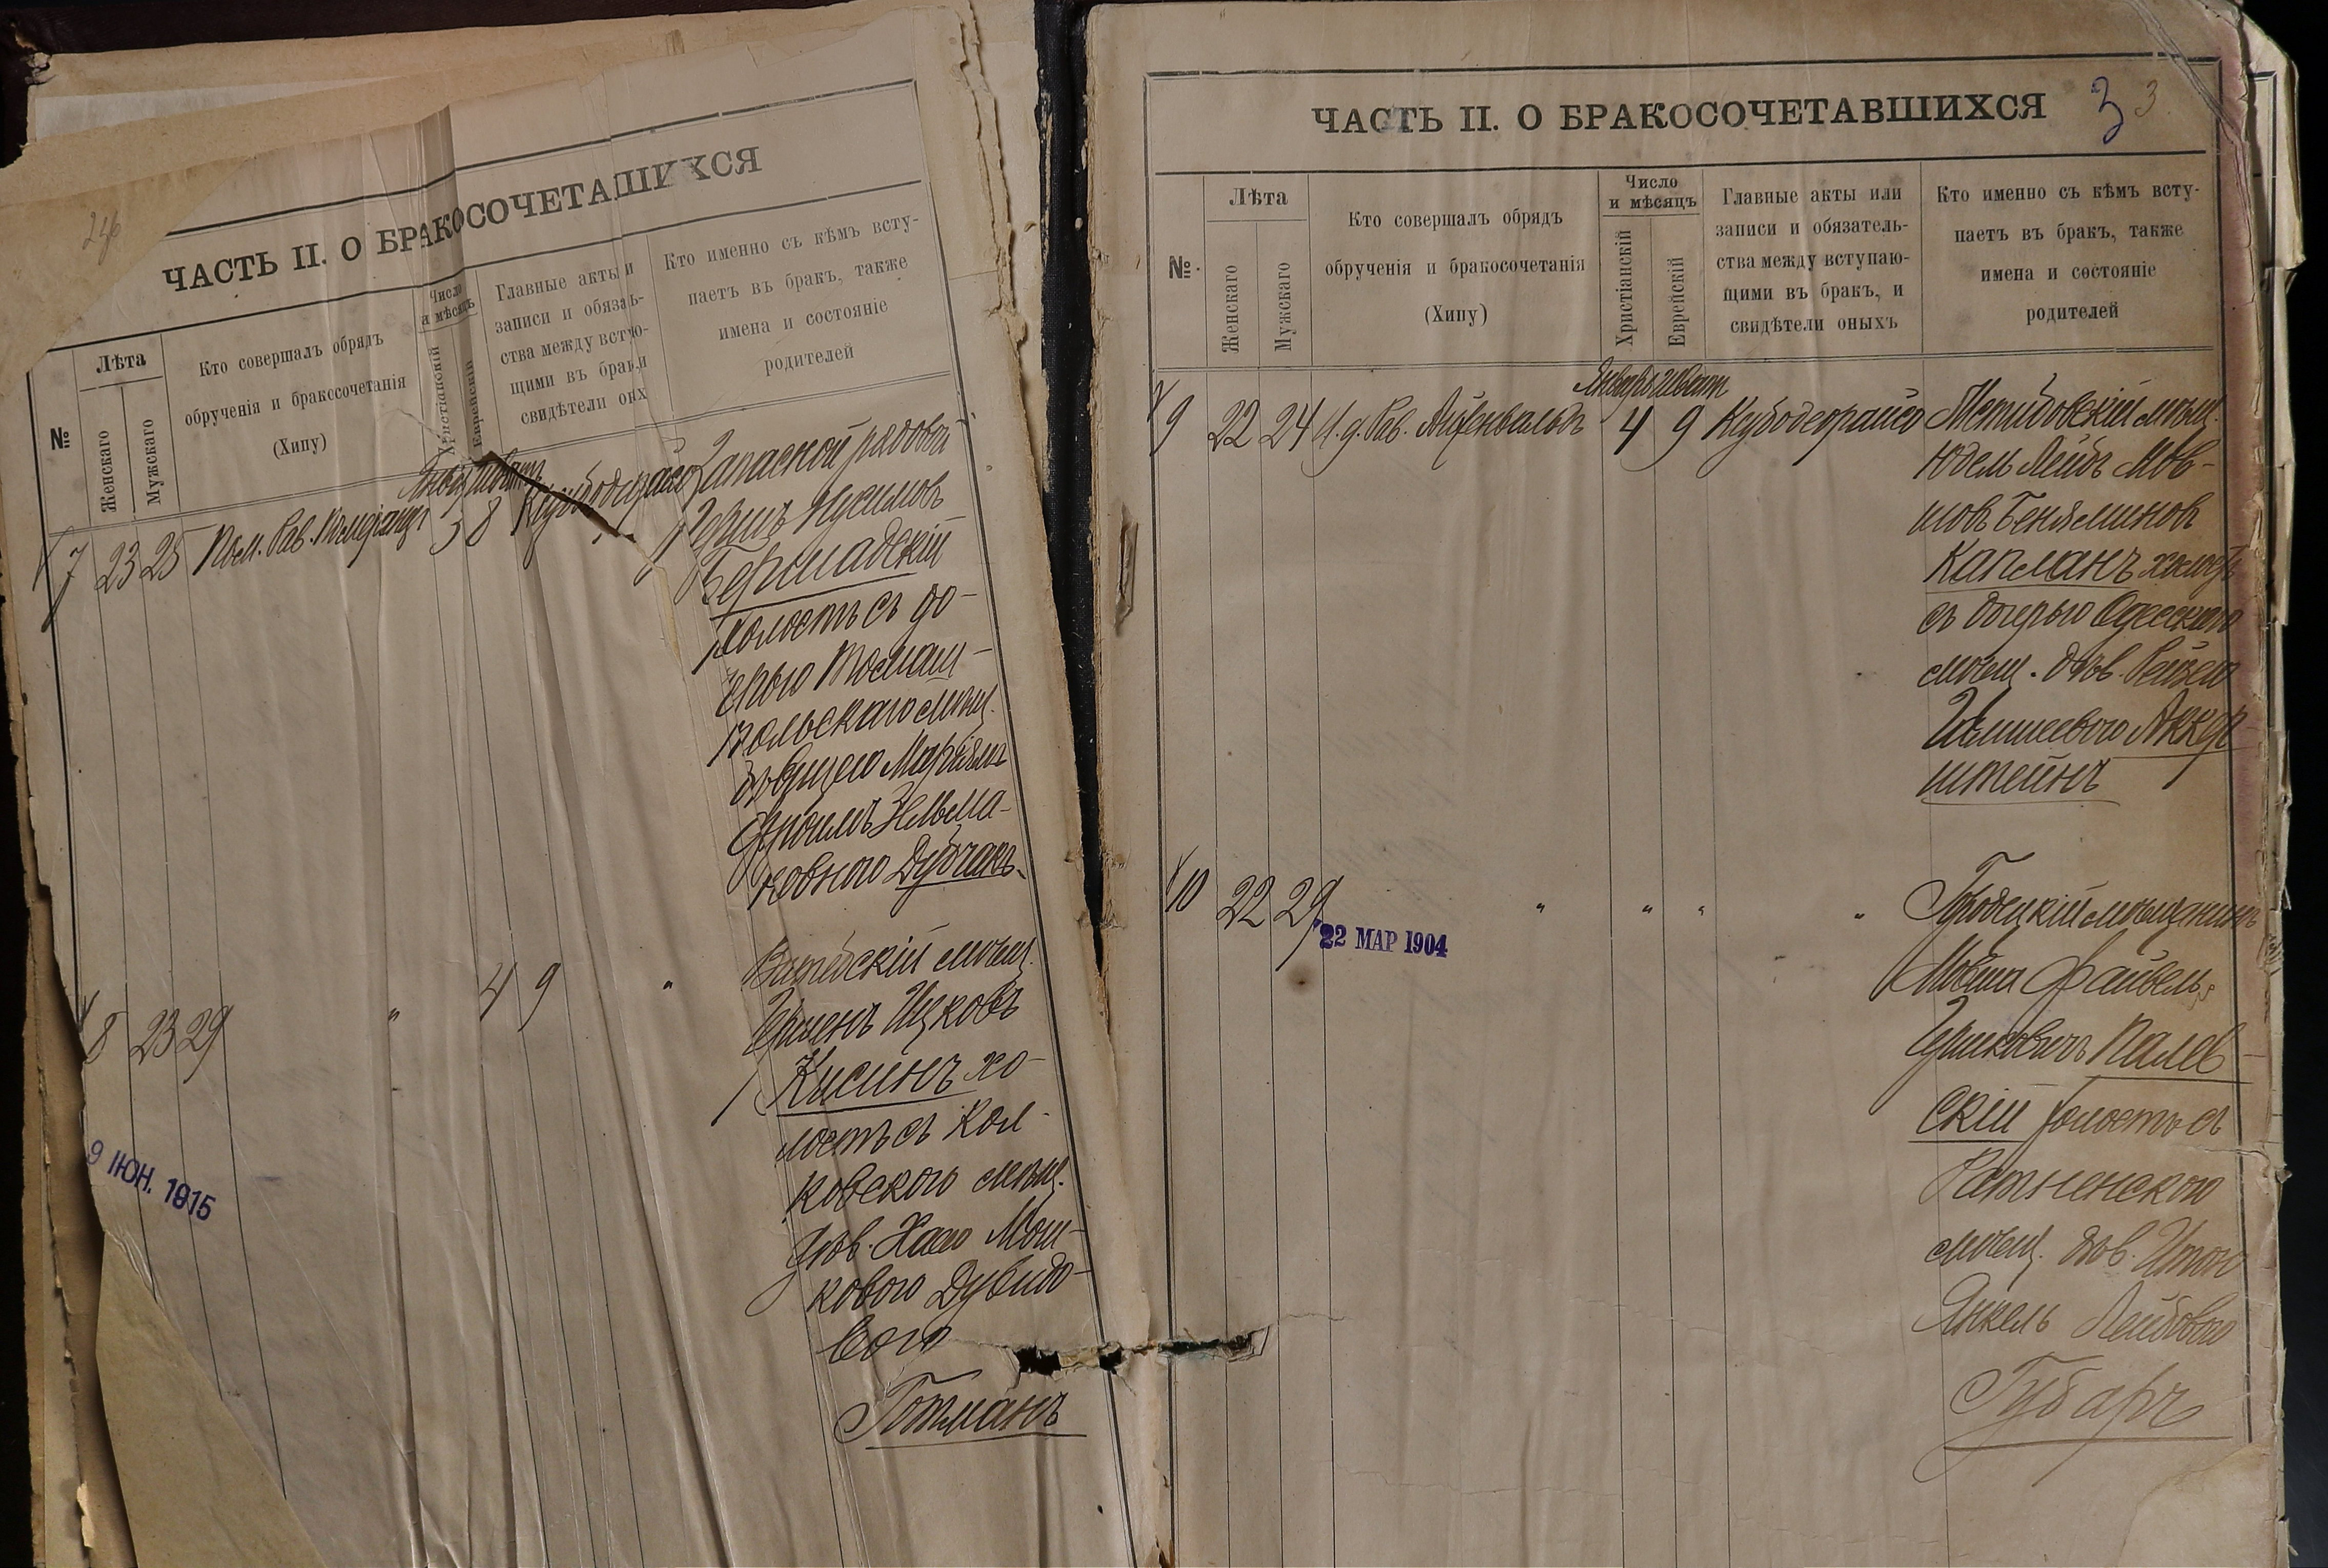 246
ЧАСТЬ II. О БРАКОСОЧЕТАШИХСЯ
№
Лѣта
Женскаго
Мужскаго
Кто совершалъ обрядъ
обрученія и браксочетанія
(Хипу)
Число
и мѣсяцъ
Христіанскій
Еврейскій
Главные акты и
записи и обязаь-
ства между встю-
щими въ браки
свидѣтели онх
Кто именно съ кѣмъ всту-
паетъ въ бракъ, также
имена и состояніе
родителей
7 23 25 Пом. Рав. Померанцъ 3 8 Запасной рядовой
Гершъ Нусимовъ
Бершадскій
холостъ съ до-
черью Томаш-
польскаго мѣщ.
дѣвицею Маріямъ
Фроимъ Зельма-
новною Дубчакъ
8 23 29 " 4 9 " Витебскій мѣщ.
Ицковъ
Кисинъ хо-
лостъ съ Кол-
ковского мѣщ.
дѣв. Хаею Мош-
ковою Дувидо-
вою
Готманъ
9 ІЮН. 1915
ЧАСТЬ II. О БРАКОСОЧЕТАВШИХСЯ
3 3
№
Лѣта
Женскаго
Мужскаго
Кто совершалъ обрядъ
обрученія и бракосочетанія
(Хипу)
Число
и мѣсяцъ
Христіанскій
Еврейскій
Главные акты или
записи и обязатель-
ства между вступаю-
щими въ бракъ, и
свидѣтели оныхъ
Кто именно съ кѣмъ всту-
паетъ въ бракъ, также
имена и состояніе
родителей
Январь Шватъ
9 22 24 И.д. Рав. Айзенвальдъ 4 9 Мстибовскій мѣщ.
Юдель Лейбъ Мов-
шовъ Беняминовъ
Капланъ холостъ
съ дочерью Одесскаго
мѣщ. дѣв. Рейзею
Аккер-
штейнъ
10 22 29 " " " " Гродецкій мѣщанинъ
Мовша Файвель
Гершковичъ Палев-
скій холостъ съ
Ратненскою
мѣщ. дѣв. Итою
Янкель Лейбовою
Губаръ
22 МАР 1904